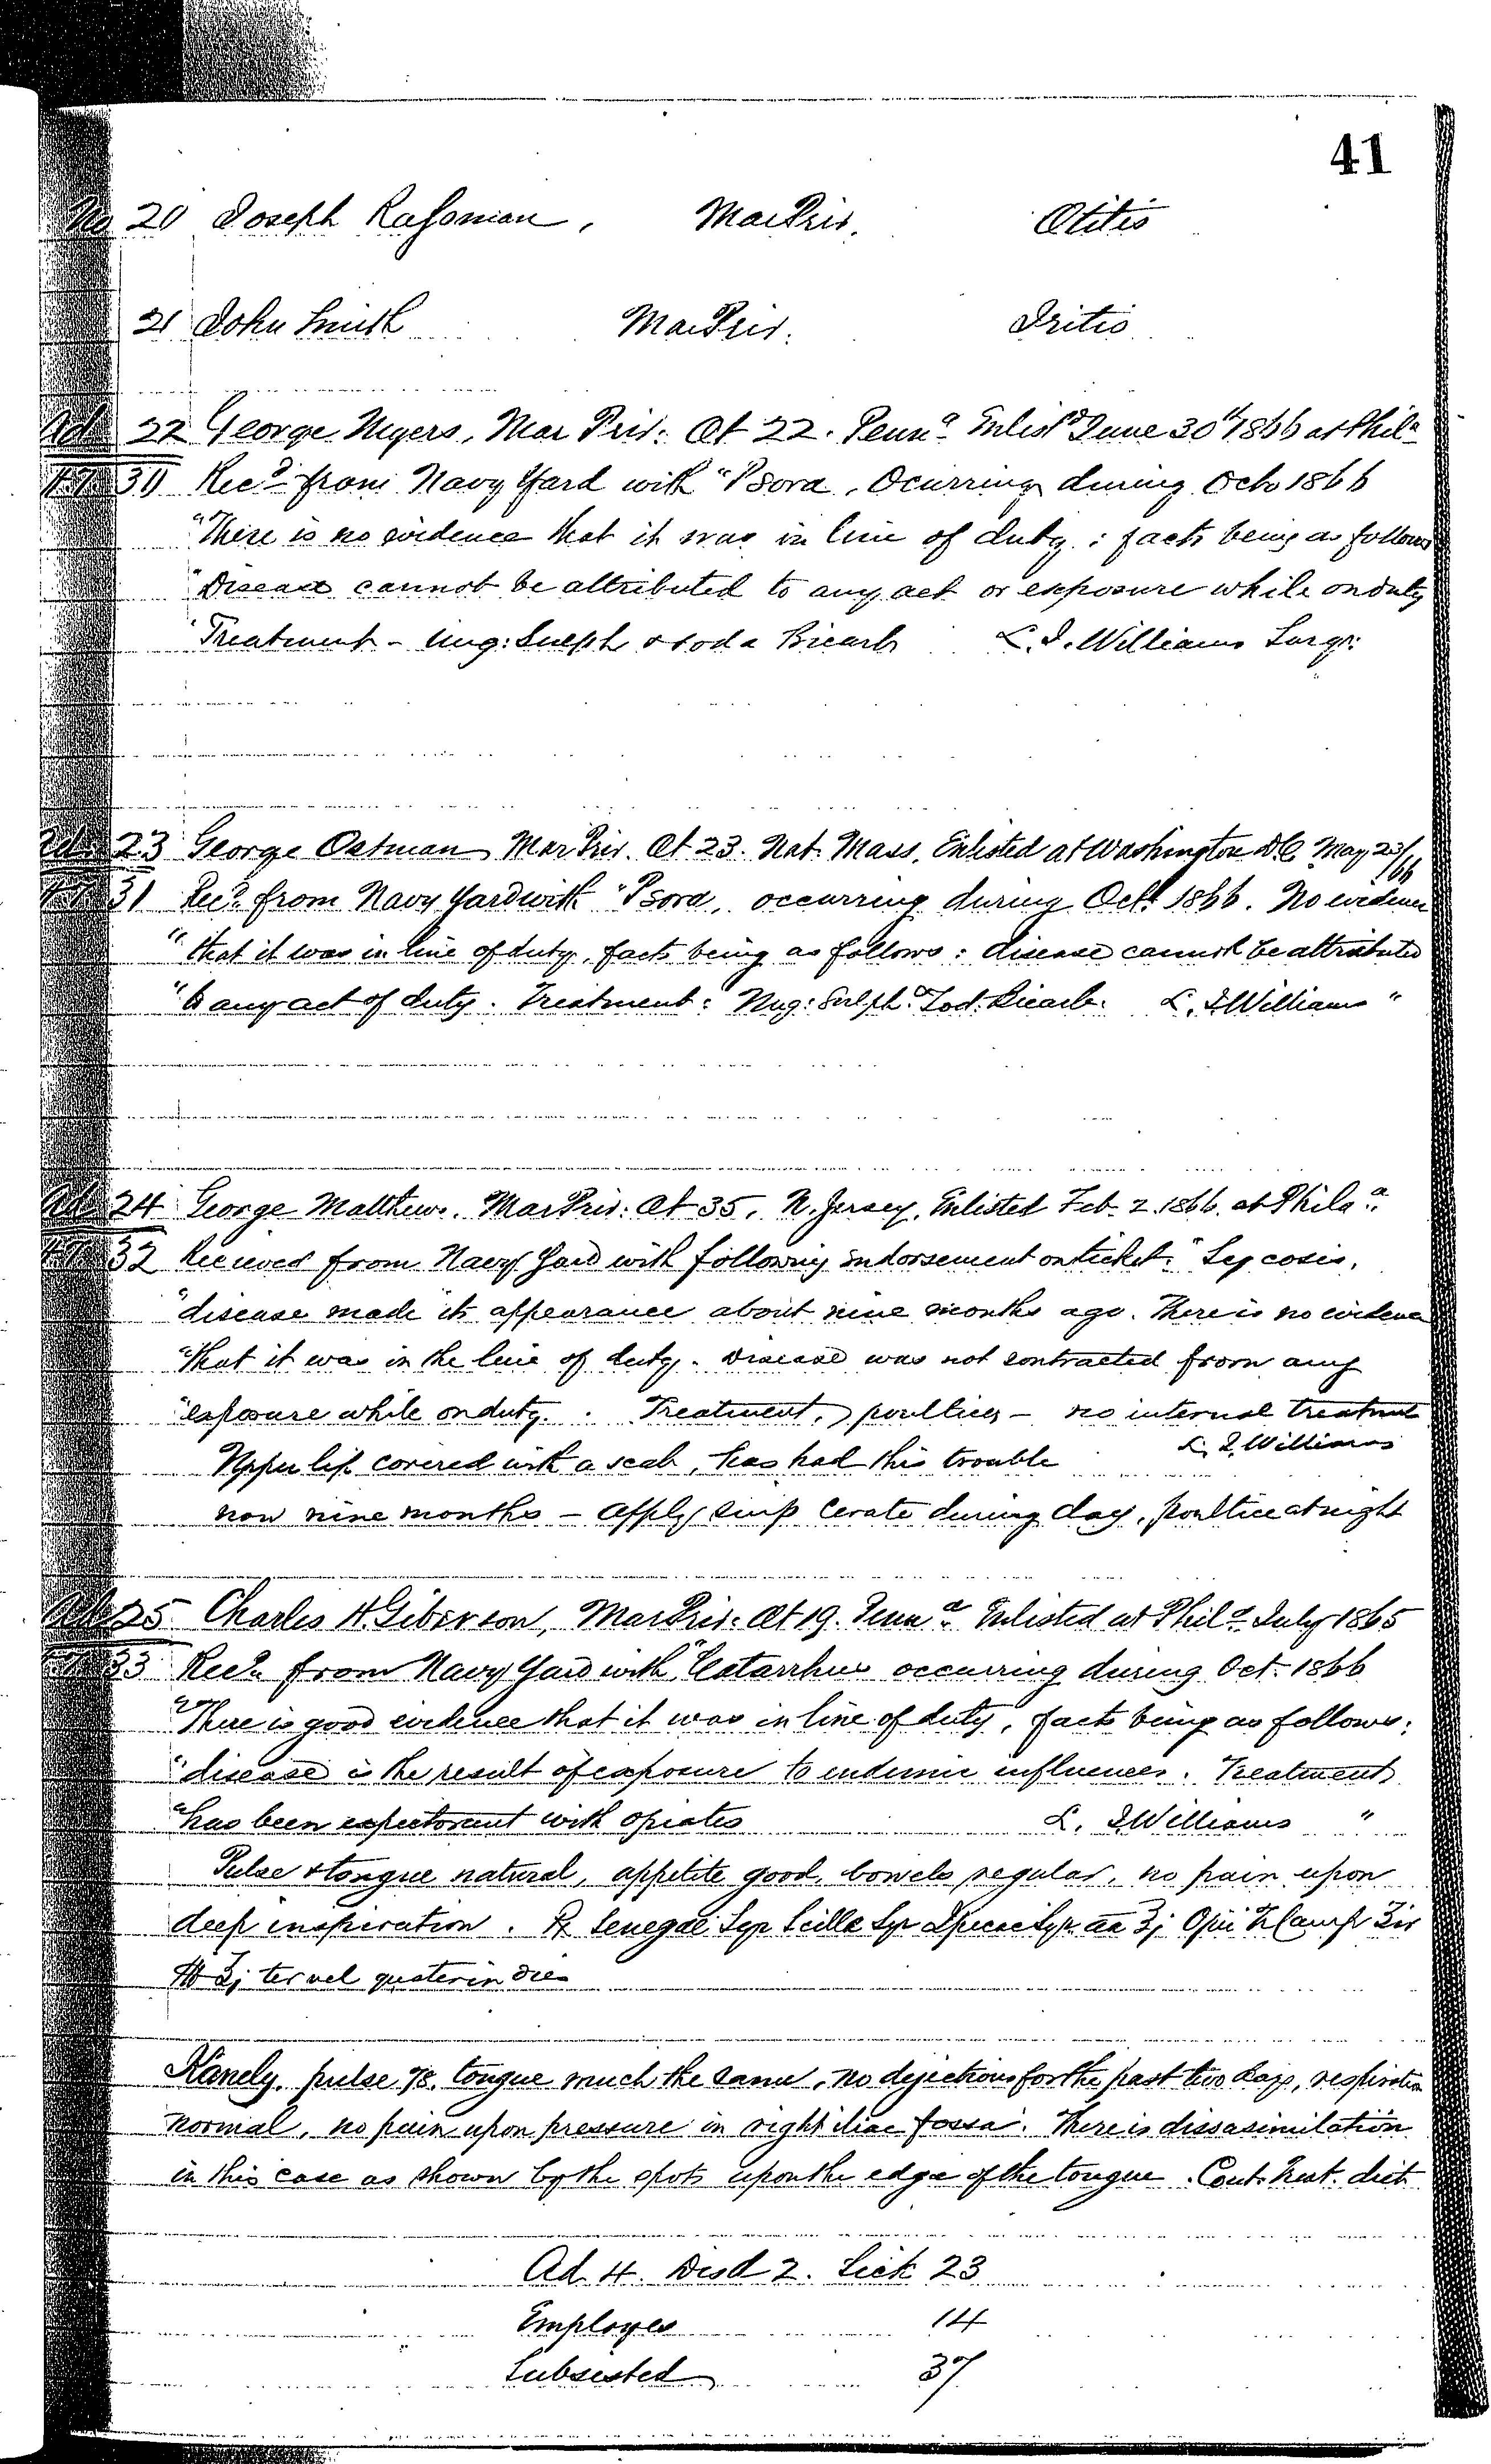 41
No 20 Joseph Rafsonian, Mar Priv. Otitis
21 John Smith Mar Priv. Iritis
Ad. 22 George Myers, Mar Priv: Æt 22. Penna Enlistd June 30th 1866 at Phila
H.T. 31 Recd from Navy Yard with "Psora, Ocurring during Octo 1866
"There is no evidence that it was in line of duty: facts being as follows
"Disease cannot be attributed to any act or exposure while on duty
"Treatment - Ung: Sulph & Soda Bicarb L. J. Williams Surgn:
Ad. 23 George Oatman Mar Priv. Æt 23. Nat. Mass. Enlisted at Washington D.C. May 23/66
H.T. 31 Recd from Navy Yard with "Psora, occurring during Oct. 1866. No evidence
" that it was in line of duty, facts being as follows: disease cannot be attributed
"to any act of duty. Treatment: Ung: Sulph. & Sod: Bicarb. L. J Williams "
Ad. 24 George Matthews. Mar Priv: Æt 35, N. Jersey. Enlisted Feb. 2. 1866. at Phila.
H.T. 32 Recieved from Navy Yard with following indorsement on ticket: "Sycosis,
"disease made its appearance about nine months ago. There is no evidence
"that it was in the line of duty. Disease was not contracted from any
"exposure while on duty. Treatment, poultices - no internal treatment
L. J. Williams
Upper lip covered with a scab, has had this trouble
now nine months - apply simp cerate during day, poultice at night
Ad. 25 Charles H. Giberson, Mar Priv. Æt 19. Penna Enlisted at Phila. July 1865
H.T. 33 Recd from Navy Yard with "Catarrhus occurring during Oct. 1866
"There is good evidence that it was in line of duty, facts being as follows:
"disease is the result of exposure to endemic influences. Treatment
"has been expectorant with opiates L. J Williams "
Pulse & tongue natural, appetite good, bowels regular, no pain upon
deep inspiration. ℞ Senegae Syr Scillae Syr Ipecac Syr. aa ℥j Opii Tr Camph ℥iv
ʒj ter vel quater in die
Kanely, pulse 78, tongue much the same, no dejections for the past two days, respiration
normal, no pain upon pressure in right iliac fossa. There is dissasimilation
in this case as shown by the spots upon the edge of the tongue. Cont. treat. diet.
Ad. 4. Disd 2. Sick 23
Employes 14
Subsisted 37